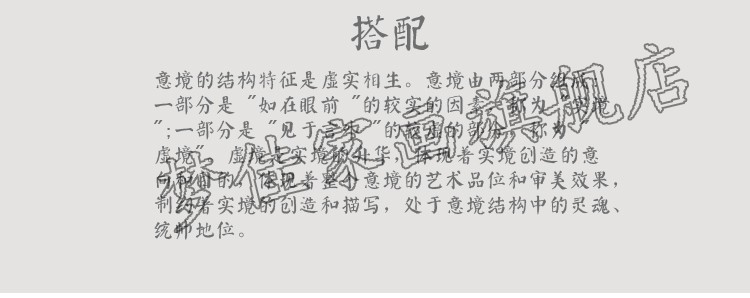 搭配
意境的结构特征是虚实相生。意境由两部分组成
一部分是 "如在眼前 "的较实的因素，称为 "实境
";一部分是 "见于言外 "的较虚的部分，称为 "
虚境"。虚境是实境的升华，体现着实境创造的意
向和目的，体现着整个意境的艺术品位和审美效果，
制约着实境的创造和描写，处于意境结构中的灵魂、
统帅地位。
梦佳家画旗舰店